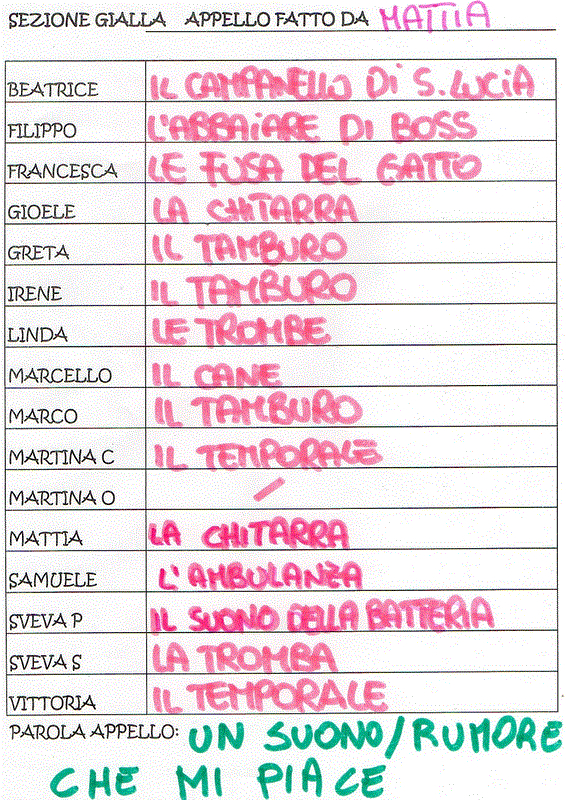 SEZIONE GIALLA APPELLO FATTO DA MATTIA
BEATRICE IL CAMPANELLO Di S. LUCiA
FILIPPO L'ABBAiARE DI BOSS
FRANCESCA LE FUSA DEL GATTO
GIOELE LA CHiTARRA
GRETA IL TAMBURO
IRENE IL TAMBURO
LINDA LE TROMBE
MARCELLO IL CANE
MARCO IL TAMBURO
MARTINA C IL TEMPORALE
MARTINA O /
MATTIA LA CHiTARRA
SAMUELE L'AMBULANZA
SVEVA P IL SUONO DELLA BATTERiA
SVEVA S LA TROMBA
VITTORIA IL TEMPORALE
PAROLA APPELLO: UN SUONO/RUMORE
CHE MI PIACE